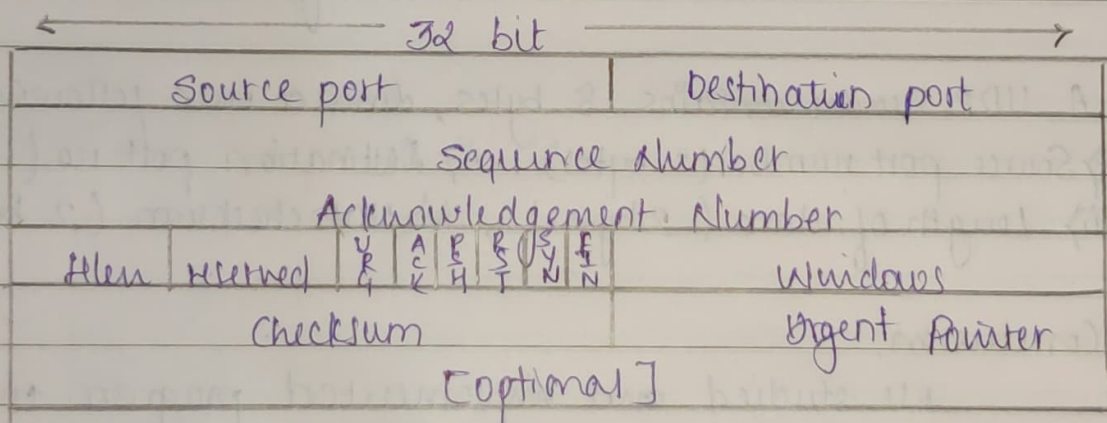 32 bit
Source port Destination port
Sequence Number
Acknowledgement Number
Hlen reserved URG ACK PSH RST SYN FIN Windows
Checksum Urgent Pointer
[optional]